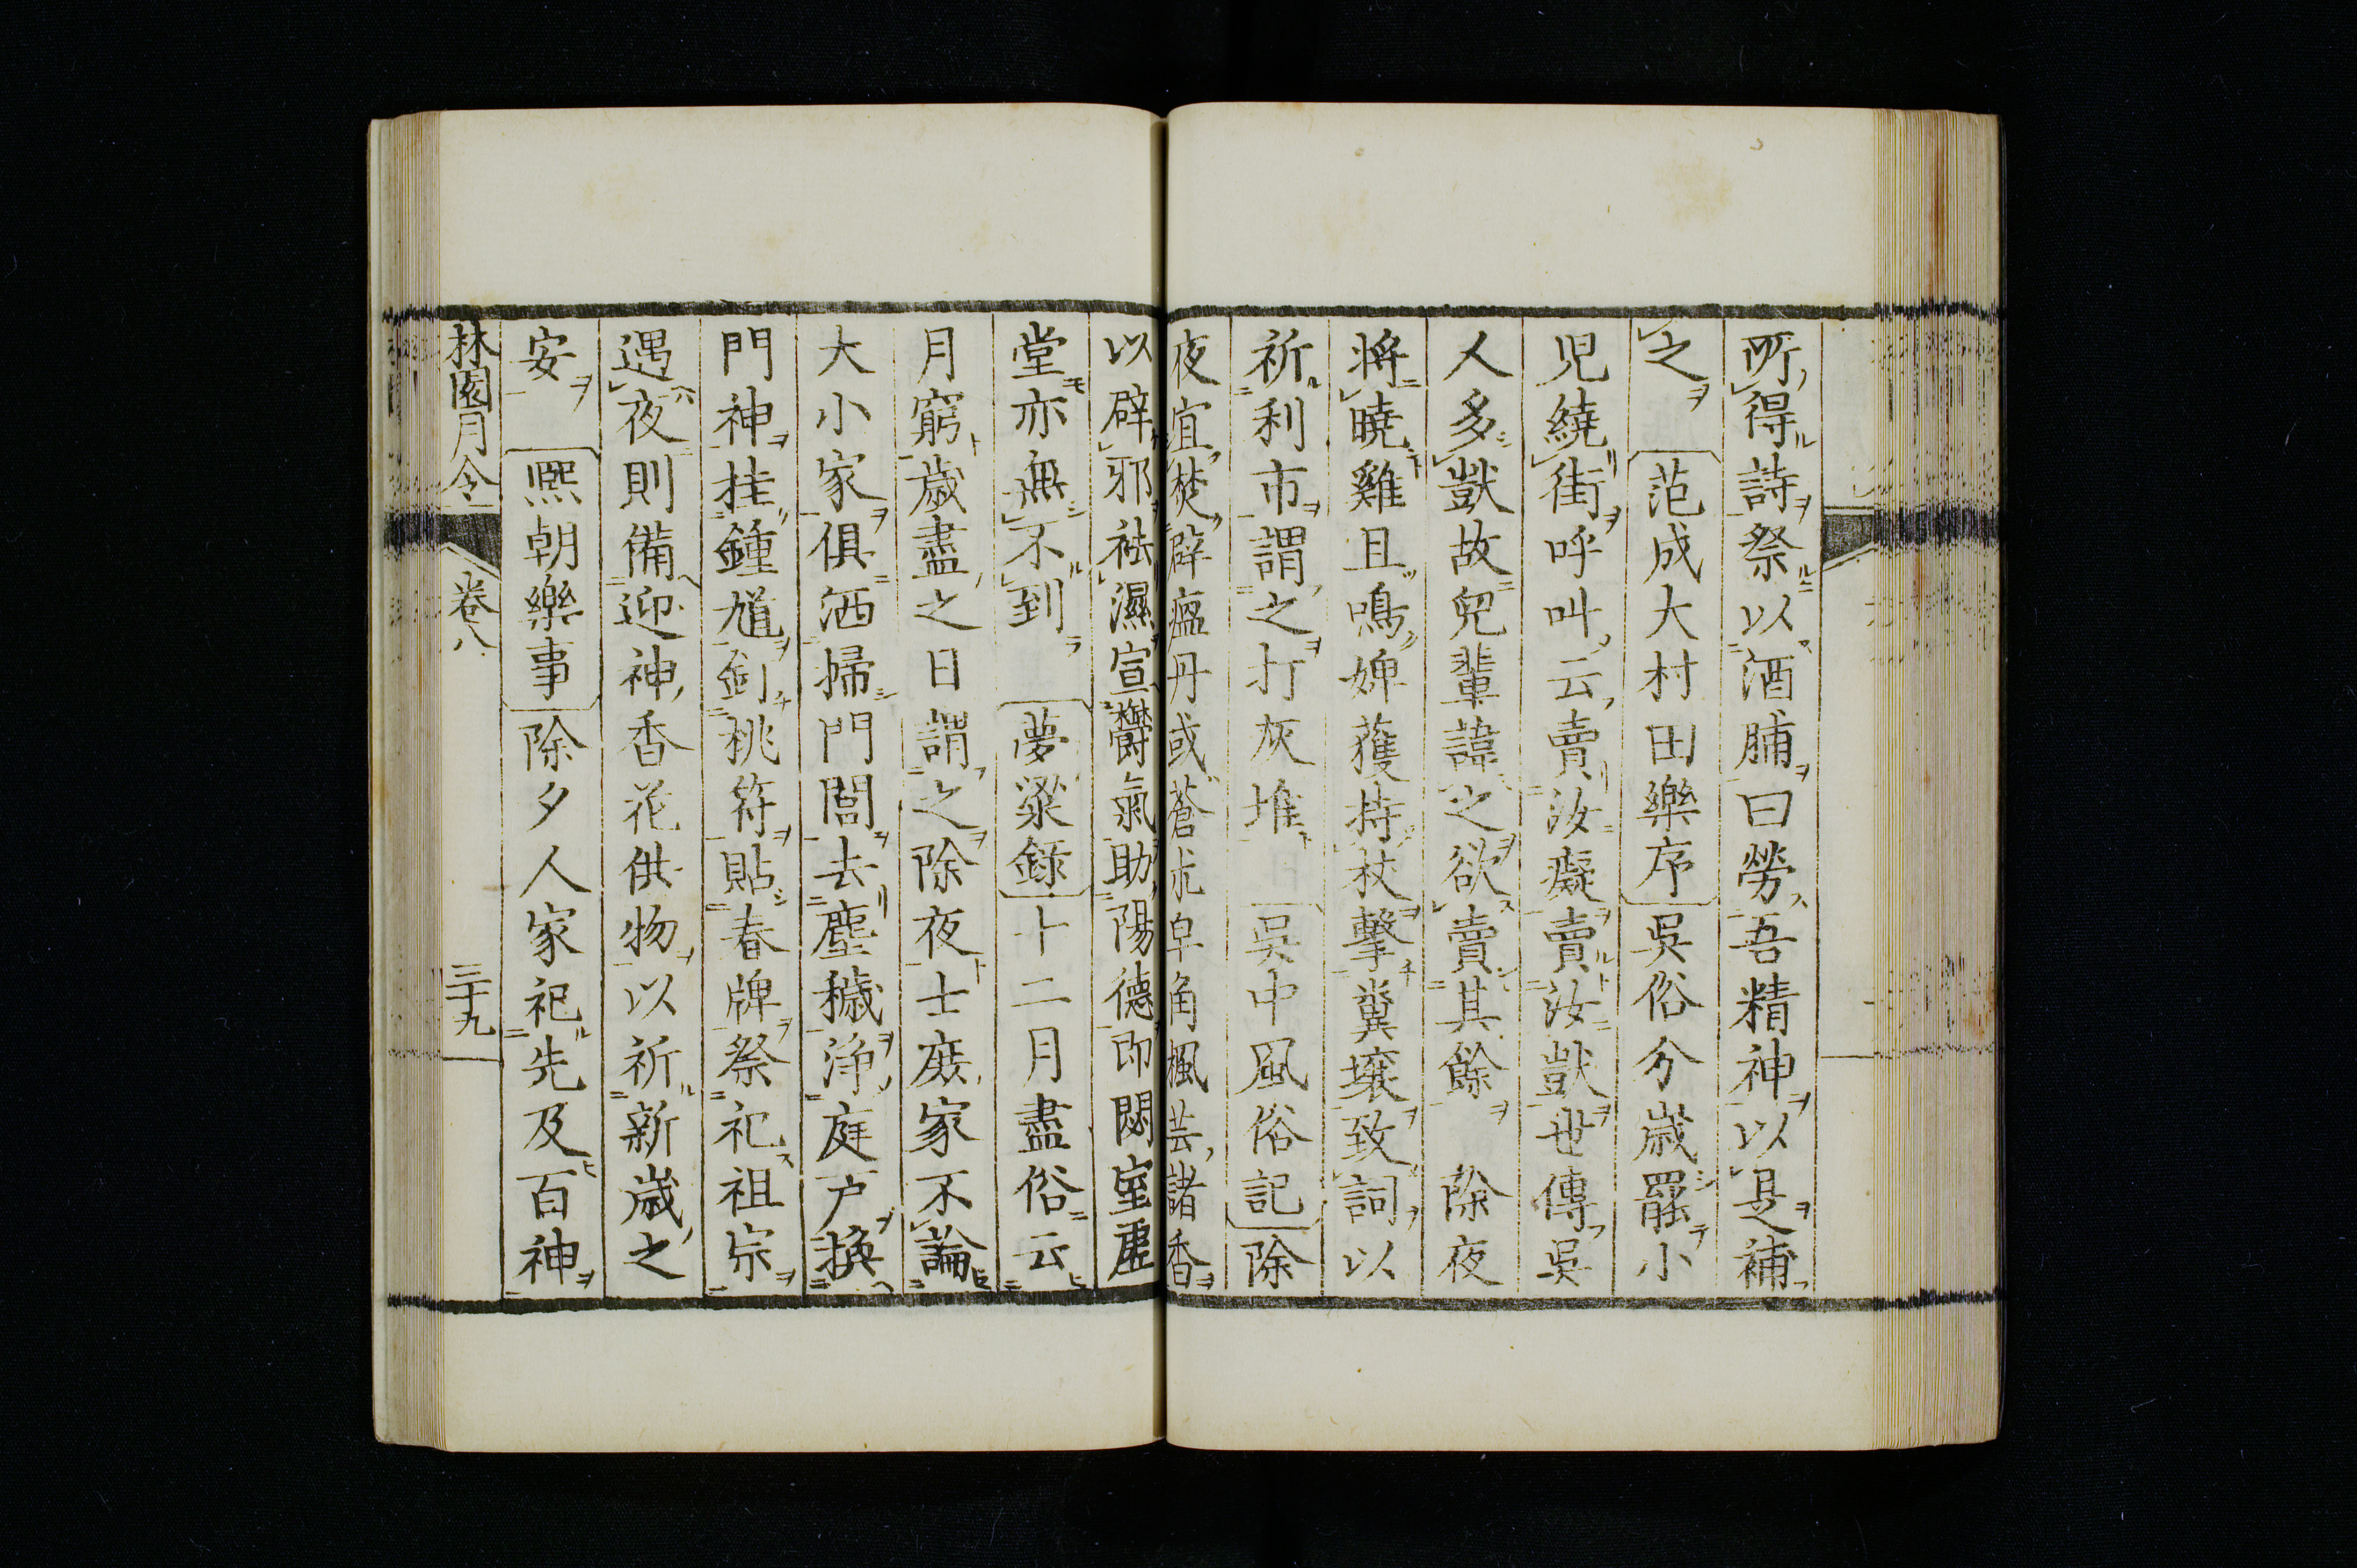 所得詩祭以酒脯曰勞吾精神以是補
之 范成大村田樂序 吳俗分歲罷小
児繞街呼叫云賣汝癡賣汝獃世傳吳
人多獃故兒輩諱之欲賣其餘 除夜
将曉雞且鳴婢獲持杖擊糞壤致詞以
祈利市謂之打灰堆 吳中風俗記 除
夜宜焚辟瘟丹或蒼朮皁角楓芸諸香
以辟邪祛濕宣欝氣助陽德即閟室虛
堂亦無不到 夢粱錄 十二月盡俗云
月窮歲盡之日謂之除夜士庶家不論
大小家俱洒掃門閭去塵穢淨庭户換
門神挂鍾馗釘桃符貼春牌祭祀祖宗
遇夜則備迎神香花供物以祈新歲之
安 熙朝樂事 除夕人家祀先及百神
林園月令 卷八 三十九